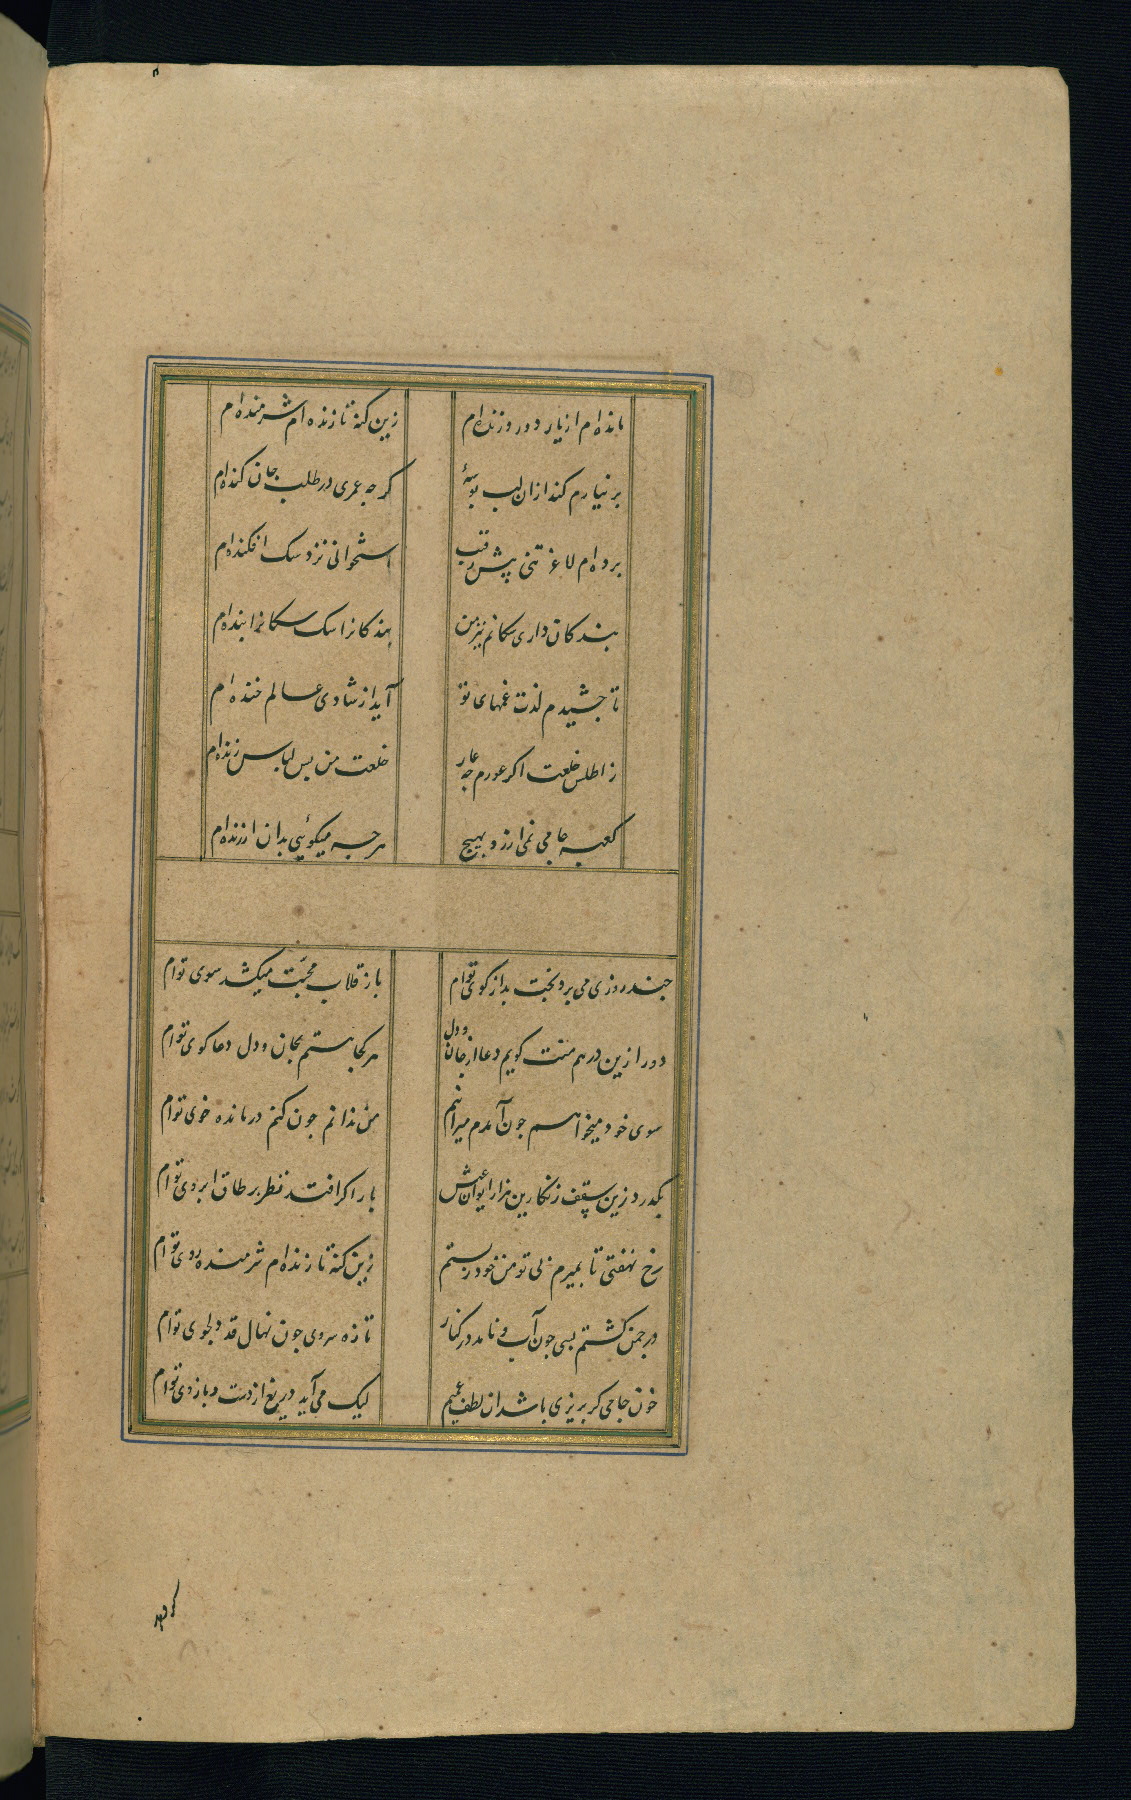 مانده‌ام از یار دور و زنده‌ام زین کنه تا زنده‌ام شرمنده‌ام
بر نیارم کند از ان لب بوسهٔ کرجه عمری در طلب جان کنده‌ام
برده‌ام لاغر تنی پیش رقیب استخوانی نزد سک افکنده‌ام
بندکان داری سکانم نیز من بندکانرا سک سکانرا بنده‌ام
تا جشیدم لذت غمهای تو آید از شادی عالم خنده‌ام
ز اطلس خلعت اکر عورم جه عار خلعت من بس لباس ژنده‌ام
کعبه جامی نمی ارزد بهیج هر جه میکوئی بدان ارزنده‌ام
جند روزی می برد بخت بد از کوی توام باز قلاب محبت میکشد سوی توام
دور ازین در هم منت کویم دعا از جان و دل هر کجا هستم بجان و دل دعا کوی توام
سوی خود میخواهیم جون آمدم میرانیم من ندانم جون کنم درمانده خوی توام
بکذرد زین سقف زنکارین هزار ایوان عیش بار اکر افتد نظر بر طاق ابروی توام
رخ نهفتی تا بمیرم بی تو من خود زیستم زین کنه تا زنده‌ام شرمنده روی توام
در جمن کشتم بسی جون آب و نامد در کنار تازه سروی جون نهال قد دلجوی توام
خون جامی کر بریزی باشد ان لطف عمیم لیک می آید دریغ از دست و بازوی توام